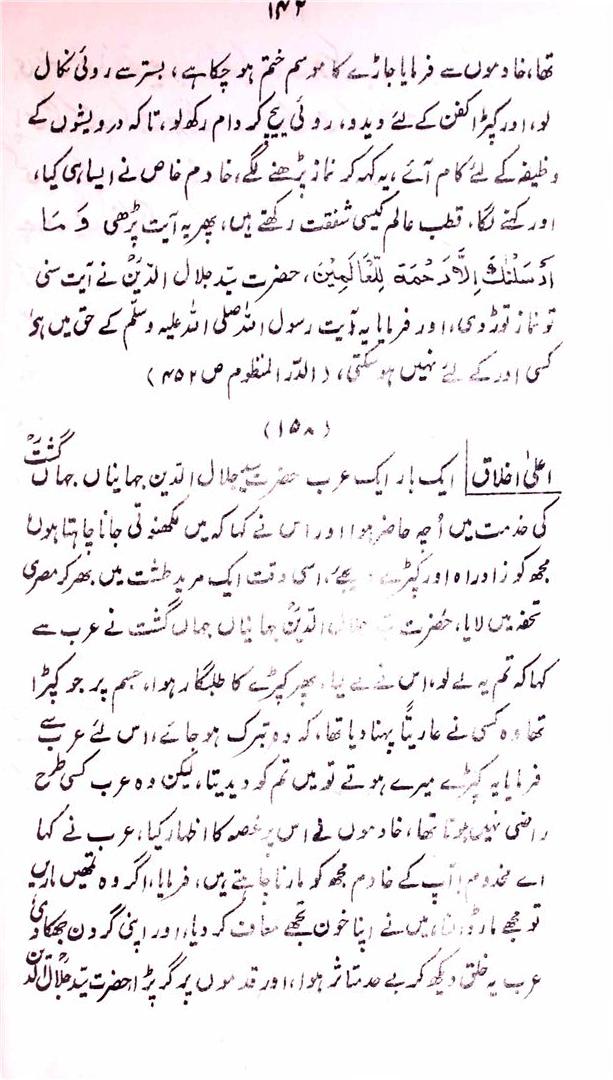 ۱۴۲
تھا، خادموں سے فرمایا جاڑے کا موسم ختم ہو چکا ہے، بستر سے روئی نکال
لو، اور کپڑا کفن کے لئے دیدو، روئی بیچ کر دام رکھ لو، تاکہ درویشوں کے
وظیفہ کے لئے کام آئے، یہ کہہ کر نماز پڑھنے لگے، خادم خاص نے ایسا ہی کیا،
اور کہنے لگا، قطب عالم کیسی شفقت رکھتے ہیں، پھر یہ آیت پڑھی وَمَا
اَرْسَلْنٰکَ اِلَّا رَحْمَةً لِّلْعَالَمِیْنَ، حضرت سیّد جلال الدّینؒ نے آیت سنی
تو نماز توڑ دی، اور فرمایا یہ آیت رسول اللہ صلی اللہ علیہ وسلّم کے حق میں ہی
کسی اور کے لئے نہیں ہو سکتی، (الدّر المنظوم ص ۴۵۲)
(۱۵۸)
اعلیٰ اخلاق ایک بار ایک عرب حضرت سید جلال الدین جہانیاں جہاں گشتؒ
کی خدمت میں اُچہ حاضر ہوا اور اس نے کہا کہ میں لکھنوتی جانا چاہتا ہوں
مجھ کو زادراہ اور کپڑے دیجئے، اسی وقت ایک مرید طشت میں بھر کر مصری
تحفہ میں لایا، حضرت جلال الدّینؒ جہانیاں جہاں گشت نے عرب سے
کہا کہ تم یہ لے لو، اس نے لے لیا، پھر کپڑے کا طلبگار ہوا، جسم پر جو کپڑا
تھا وہ کسی نے عاریتًا پہنا دیا تھا، کہ وہ تبرک ہو جائے، اس لئے عرب سے
فرمایا یہ کپڑے میرے ہوتے تو میں تم کو دیدیتا، لیکن وہ عرب کسی طرح
راضی نہیں ہوتا تھا، خادموں نے اس پر غصہ کا اظہار کیا، عرب نے کہا
اے مخدوم! آپ کے خادم مجھ کو مارنا چاہتے ہیں، فرمایا، اگر وہ تمھیں ماریں
تو مجھے مار ڈالنا، میں نے اپنا خون تجھے معاف کر دیا، اور اپنی گردن جھکا دی
عرب یہ خلق دیکھ کر بے حد متاثر ہوا، اور قدموں پر گر پڑا حضرت سیّد جلال الدینؒ